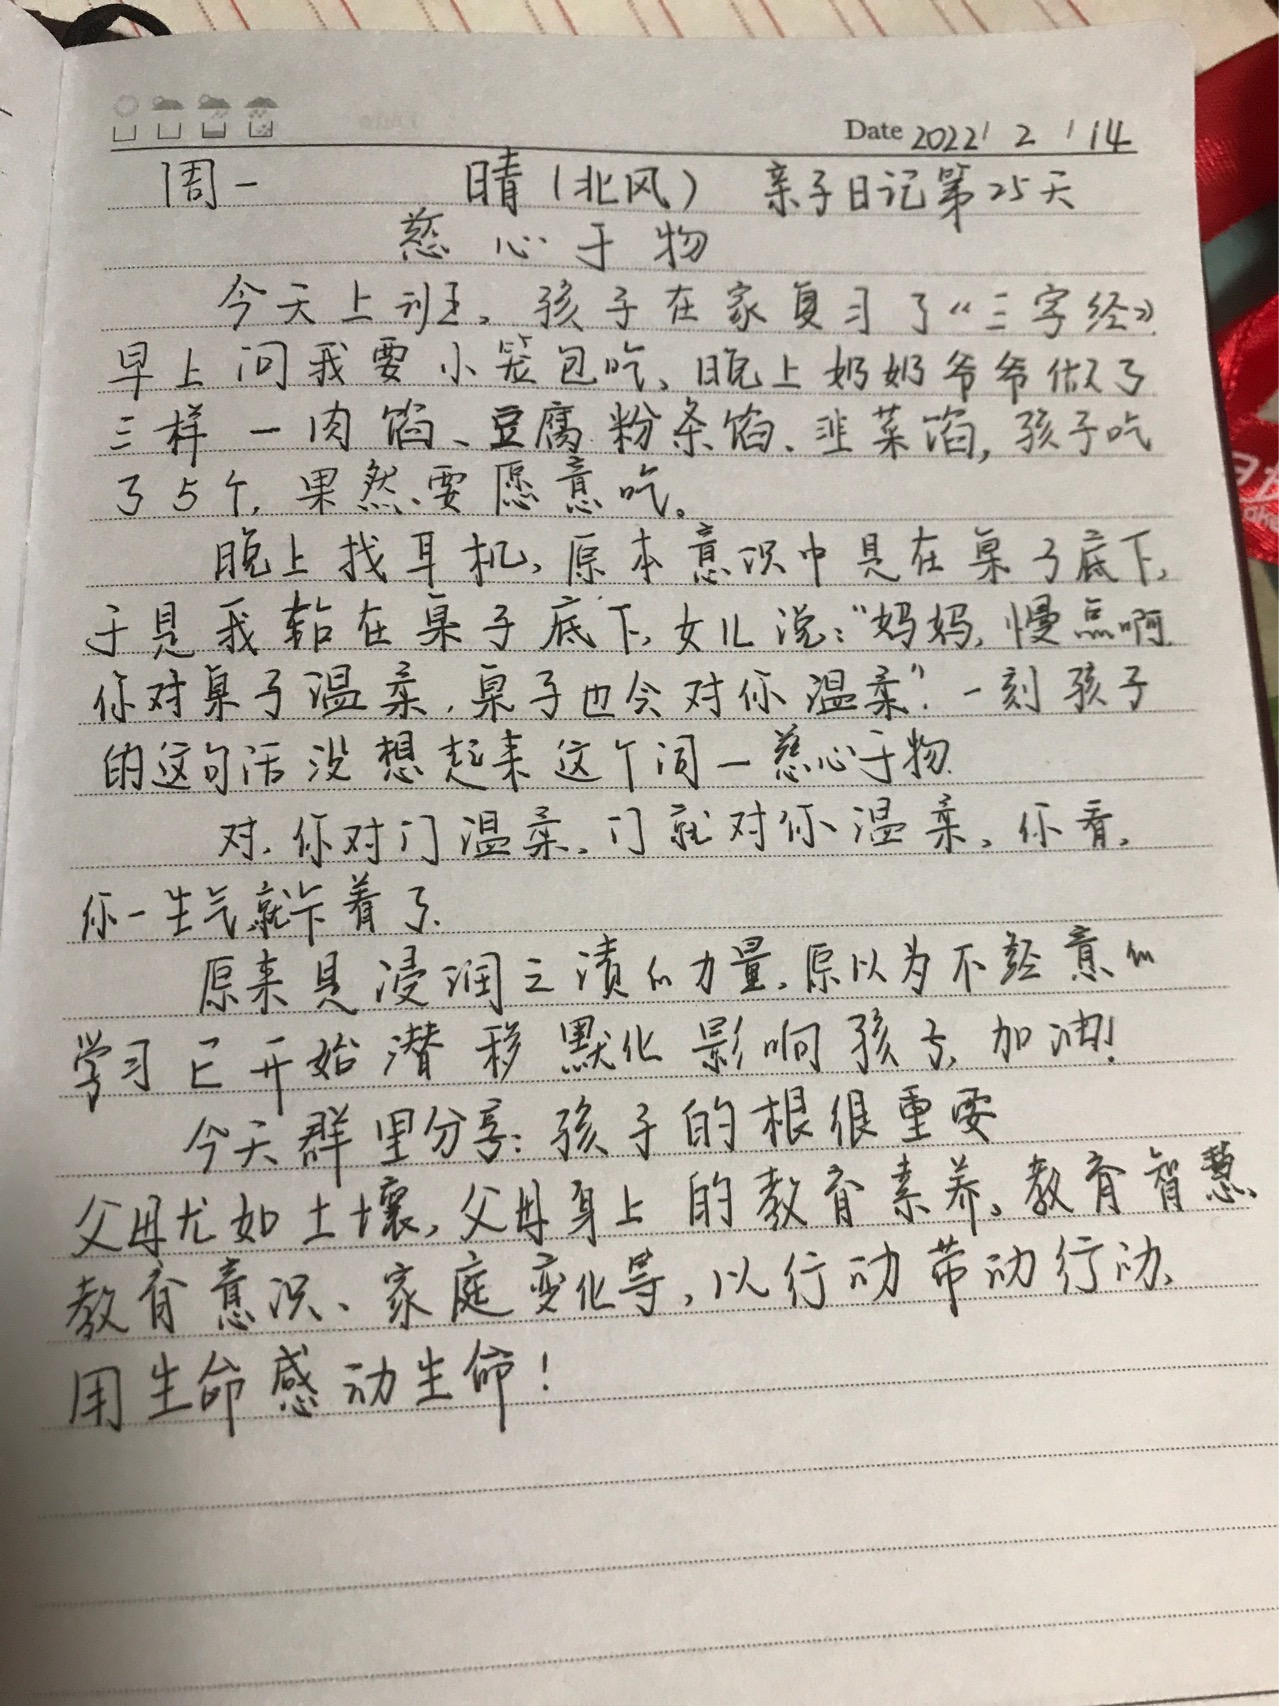 Date 2022 / 2 / 14
周一 晴(北风) 亲子日记第25天
慈心于物
今天上班。孩子在家复习了“三字经》
早上问我要小笼包吃、晚上奶奶爷爷做了
三样一肉馅、豆腐粉条馅、韭菜馅,孩子吃
了5个,果然、要愿意吃。
晚上找耳机,原本意识中是在桌子底下,
于是我钻在桌子底下,女儿说:“妈妈,慢点啊
你对桌子温柔,桌子也会对你温柔”.一刻孩子
的这句话没想起来这个词一慈心于物.
对,你对门温柔,门就对你温柔。你看,
你一生气就卡着了.
原来是浸润之渍的力量,原以为不经意的
学习已开始潜移默化影响孩子,加油!
今天群里分享:孩子的根很重要
父母尤如土壤,父母身上的教育素养。教育智慧、
教育意识、家庭变化等,以行动带动行动、
用生命感动生命!